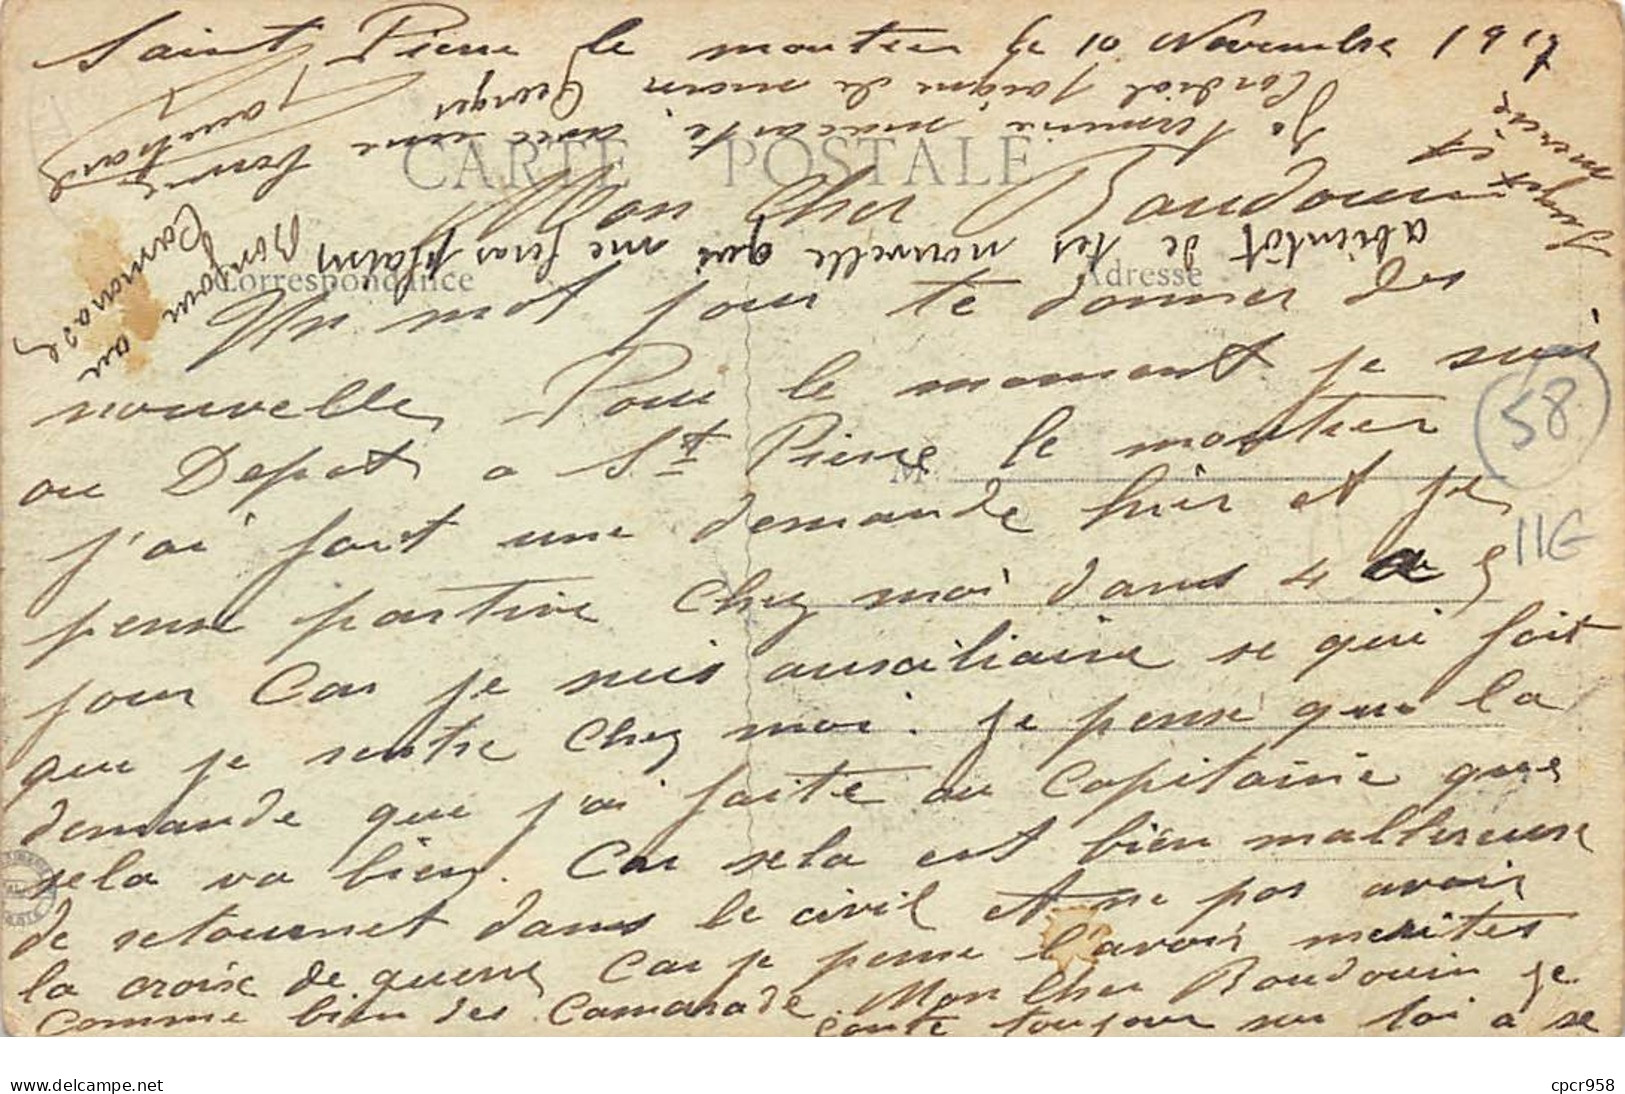 Saint Pierre le moutier le 10 Novembre 1917
CARTE POSTALE
Mon cher Baudouin
Correspondance
Adresse
Un mot pour te donner des
nouvelle, Pour le moment je suis
au Depot a St Pierre le moutier
M
j'ai fait une demande hier et je
pense partire chez moi dans 4 a 5
jour Car je suis auxiliaire se qui fait
que je rentre chez moi. je pense que la
demande que j'ai faite au Capitaine que
sela va bien. Car sela est bien malhereuse
de retournet dans le civil et ne pas avoir
la croix de guerre Car je pense l'avoir merites
comme bien des Camarade. Mon Cher Baudouin je
conte toujour sur toi a se
sujet et
mercie
abientôt de tes nouvelle qui me feras plaisir
Bonjour au
Camarade
Je termine macarte, avec une
Cordial poigne de main Georges
58
11G
cpcr958
delcampe.net